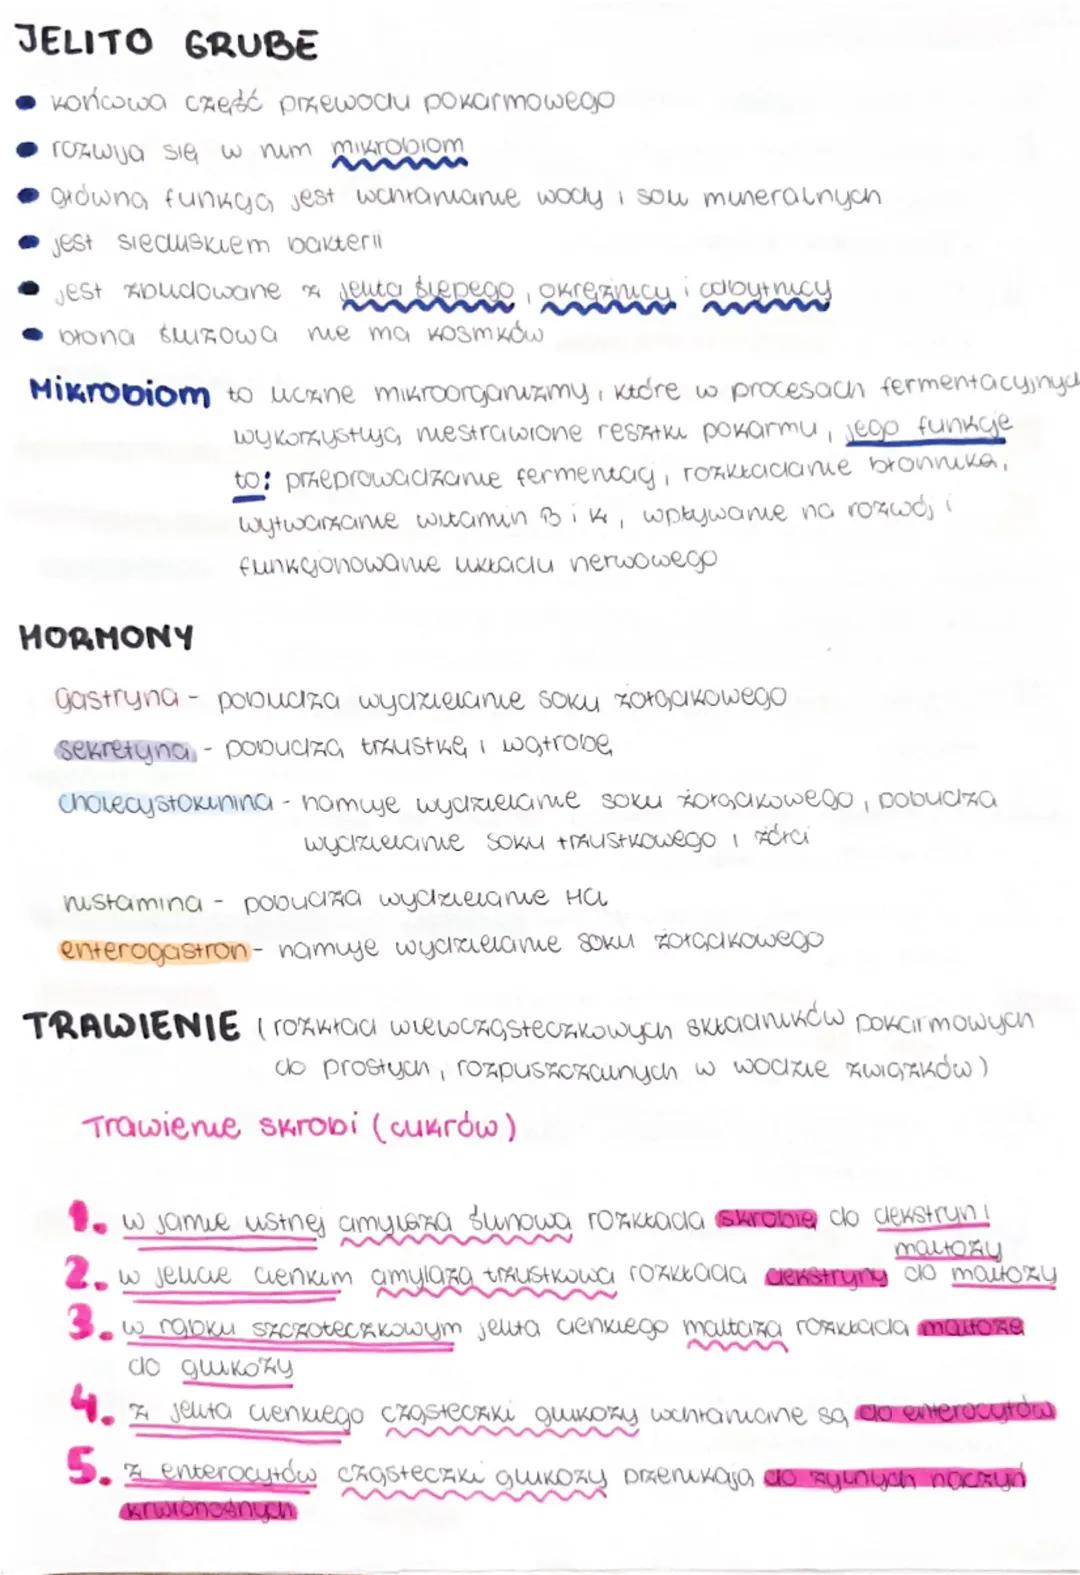 JELITO GRUBE
końcowa część przewodu pokarmowego
rozwija się w nim mikrobiom
główną funkcją jest wchłanianie wody i soli mineralnych
jest siedliskiem bakterii
jest zbudowane z jelita ślepego, okrężnicy i odbytnicy
błona śluzowa nie ma kosmków
Mikrobiom to liczne mikroorganizmy, które w procesach fermentacyjnych
wykorzystują niestrawione resztki pokarmu, jego funkcje
to: przeprowadzanie fermentacji, rozkładanie błonnika,
wytwarzanie witamin B i K, wpływanie na rozwój i
funkcjonowanie układu nerwowego
HORMONY
gastryna - pobudza wydzielanie soku żołądkowego
sekretyna - pobudza trzustkę i wątrobę
cholecystokinina - hamuje wydzielanie soku żołądkowego, pobudza
wydzielanie soku trzustkowego i żółci
histamina - pobudza wydzielanie HCl
enterogastron - hamuje wydzielanie soku żołądkowego
TRAWIENIE (rozkład wielocząsteczkowych składników pokarmowych
do prostych, rozpuszczalnych w wodzie związków)
Trawienie skrobi (cukrów)
1. w jamie ustnej amylaza ślinowa rozkłada skrobię do dekstryn i
maltozy
2. w jelicie cienkim amylaza trzustkowa rozkłada dekstryny do maltozy
3. w rąbku szczoteczkowym jelita cienkiego maltaza rozkłada maltozę
do glukozy
4. z jelita cienkiego cząsteczki glukozy wchłaniane są do enterocytów
5. z enterocytów cząsteczki glukozy przenikają do żylnych naczyń
krwionośnych